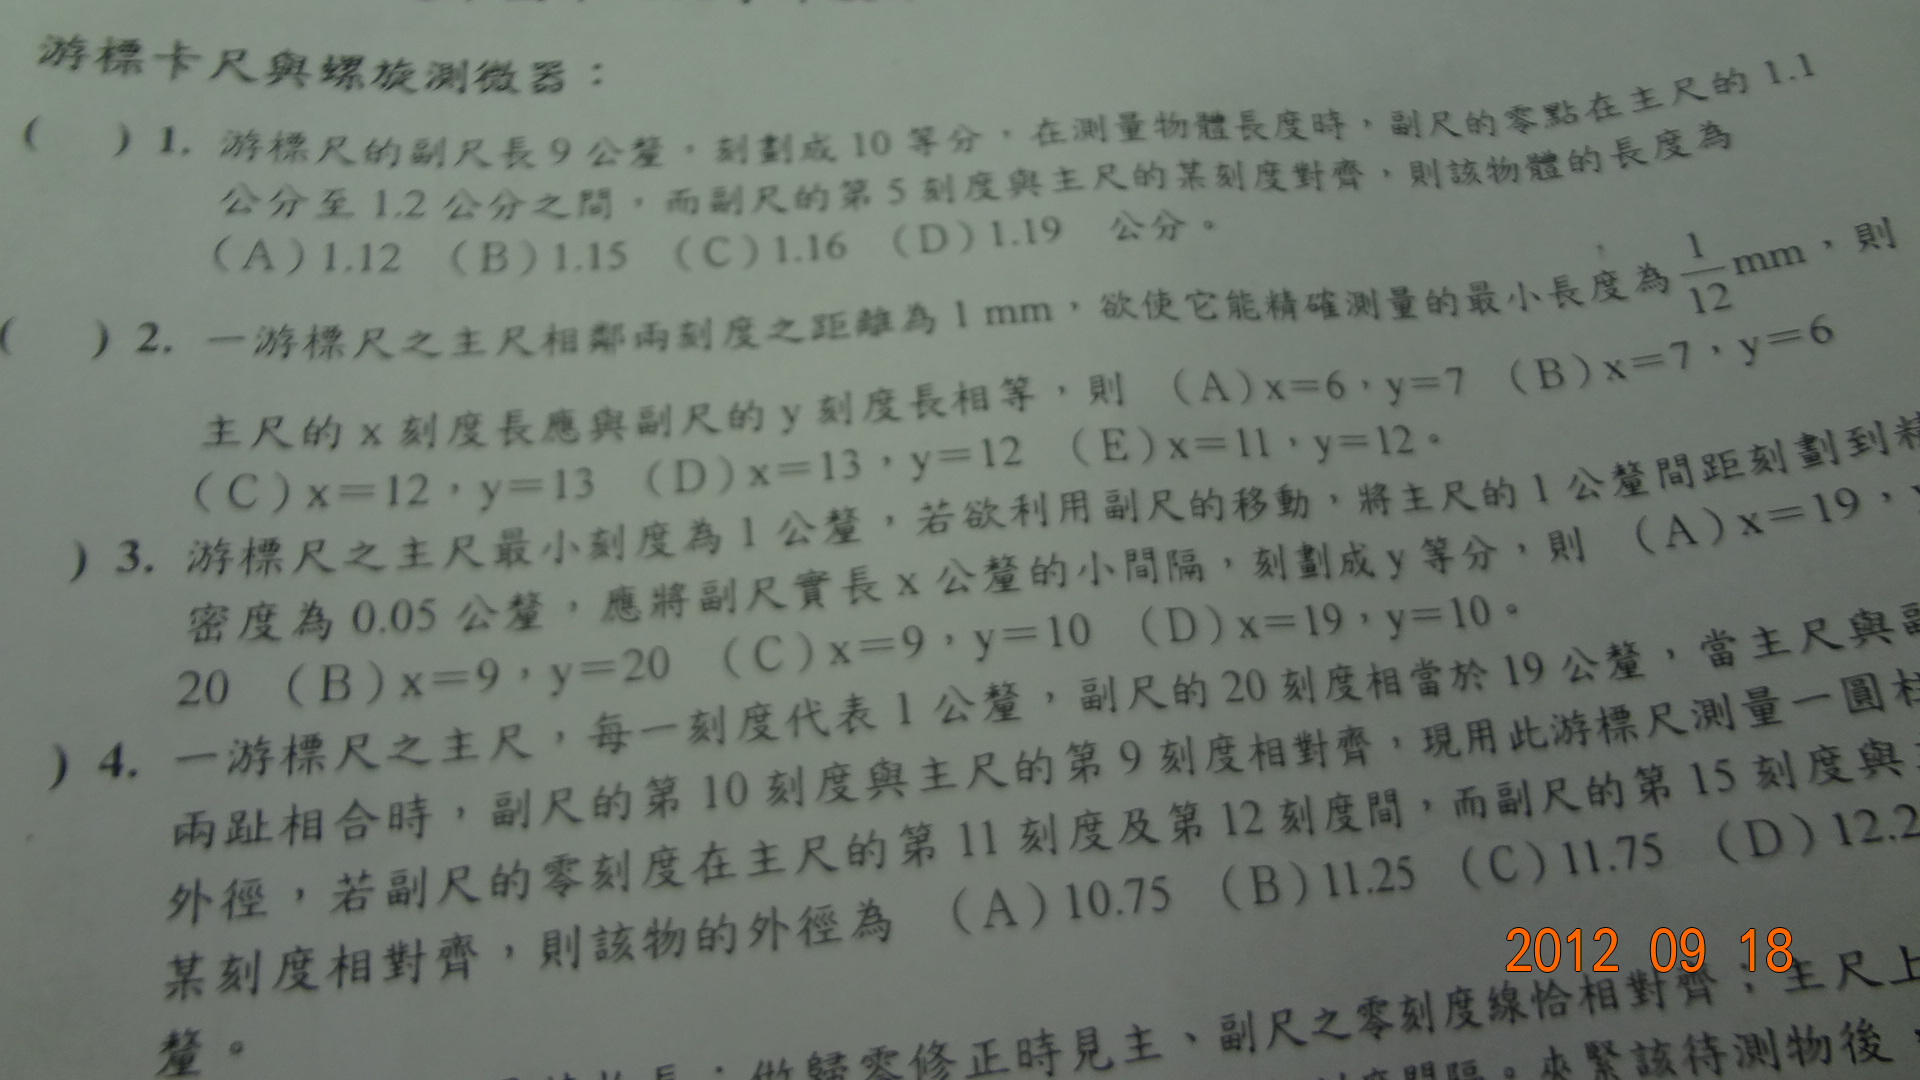 游標卡尺與螺旋測微器：
(　) 1. 游標尺的副尺長 9 公釐，刻劃成 10 等分，在測量物體長度時，副尺的零點在主尺的 1.1
公分至 1.2 公分之間，而副尺的第 5 刻度與主尺的某刻度對齊，則該物體的長度為
(A) 1.12 (B) 1.15 (C) 1.16 (D) 1.19 公分。
(　) 2. 一游標尺之主尺相鄰兩刻度之距離為 1 mm，欲使它能精確測量的最小長度為 1/12 mm，則
主尺的 x 刻度長應與副尺的 y 刻度長相等，則 (A) x=6，y=7 (B) x=7，y=6
(C) x=12，y=13 (D) x=13，y=12 (E) x=11，y=12。
) 3. 游標尺之主尺最小刻度為 1 公釐，若欲利用副尺的移動，將主尺的 1 公釐間距刻劃到精
密度為 0.05 公釐，應將副尺實長 x 公釐的小間隔，刻劃成 y 等分，則 (A) x=19，
20 (B) x=9，y=20 (C) x=9，y=10 (D) x=19，y=10。
) 4. 一游標尺之主尺，每一刻度代表 1 公釐，副尺的 20 刻度相當於 19 公釐，當主尺與副
兩趾相合時，副尺的第 10 刻度與主尺的第 9 刻度相對齊，現用此游標尺測量一圓柱
外徑，若副尺的零刻度在主尺的第 11 刻度及第 12 刻度間，而副尺的第 15 刻度與
某刻度相對齊，則該物的外徑為 (A) 10.75 (B) 11.25 (C) 11.75 (D) 12.2
釐。
做歸零修正時見主、副尺之零刻度線恰相對齊；主尺上
夾緊該待測物後，
2012 09 18